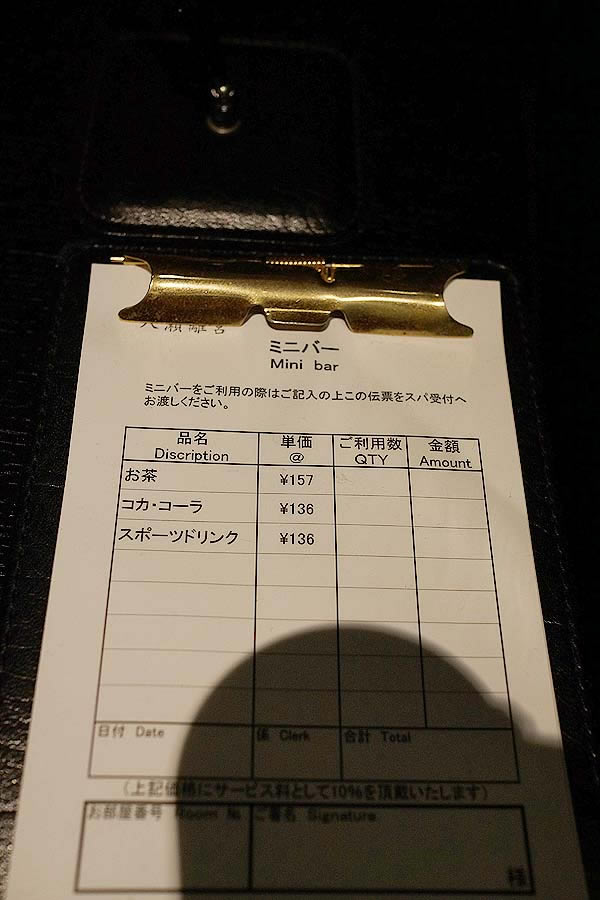 瀬離宮
ミニバー
Mini bar
ミニバーをご利用の際はご記入の上この伝票をスパ受付へ
お渡しください。
品名 単価 ご利用数 金額
Discription @ QTY Amount
お茶 ¥157
コカ・コーラ ¥136
スポーツドリンク ¥136
日付 Date 係 Clerk 合計 Total
(上記価格にサービス料として10%を頂戴いたします)
お部屋番号 Room № ご署名 Signature
様